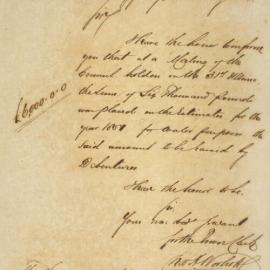 Sir,
I have the honor to inform
you that at a Meeting of the
Council holden on the 31st Ultimo
the Sum of Six Thousand pounds
was placed on the Estimates for the
£6,000.0.0
year 1881 for water purposes the
said amount to be raised by
Debentures
I have the honor to be
Sir
Your Obdt Servant
for the Town Clerk